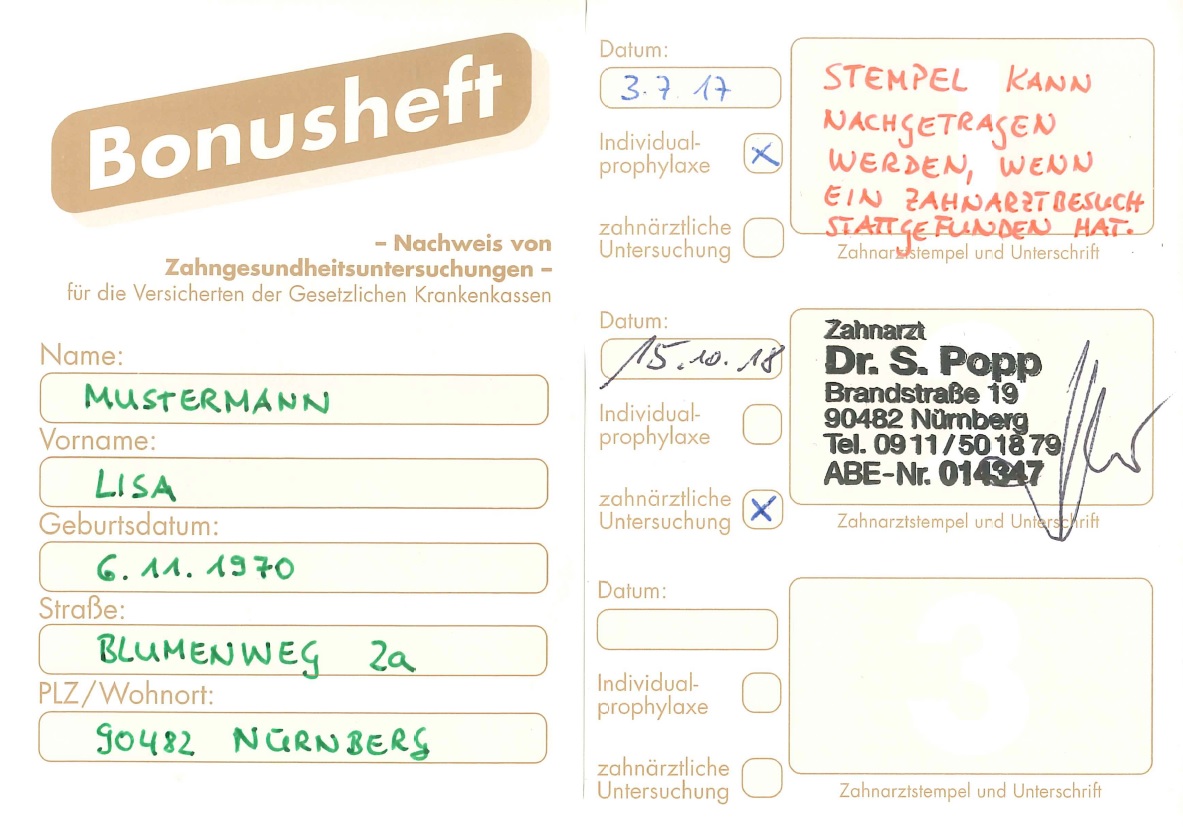 Bonusheft
– Nachweis von
Zahngesundheitsuntersuchungen –
für die Versicherten der Gesetzlichen Krankenkassen
Name:
MUSTERMANN
Vorname:
LISA
Geburtsdatum:
6.11.1970
Straße:
BLUMENWEG 2a
PLZ/Wohnort:
90482 NÜRNBERG
Datum:
3.7.17
Individual-
prophylaxe
zahnärztliche
Untersuchung
STEMPEL KANN
NACHGETRAGEN
WERDEN, WENN
EIN ZAHNARZTBESUCH
STATTGEFUNDEN HAT.
Zahnarztstempel und Unterschrift
Datum:
15.10.18
Individual-
prophylaxe
zahnärztliche
Untersuchung
Zahnarzt
Dr. S. Popp
Brandstraße 19
90482 Nürnberg
Tel. 09 11/50 18 79
ABE-Nr. 014347
Zahnarztstempel und Unterschrift
Datum:
Individual-
prophylaxe
zahnärztliche
Untersuchung
3
Zahnarztstempel und Unterschrift